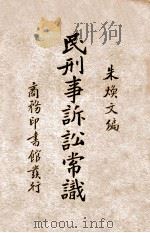 朱煥文編
民刑事訴訟常識
商務印書館發行
mtoou.info